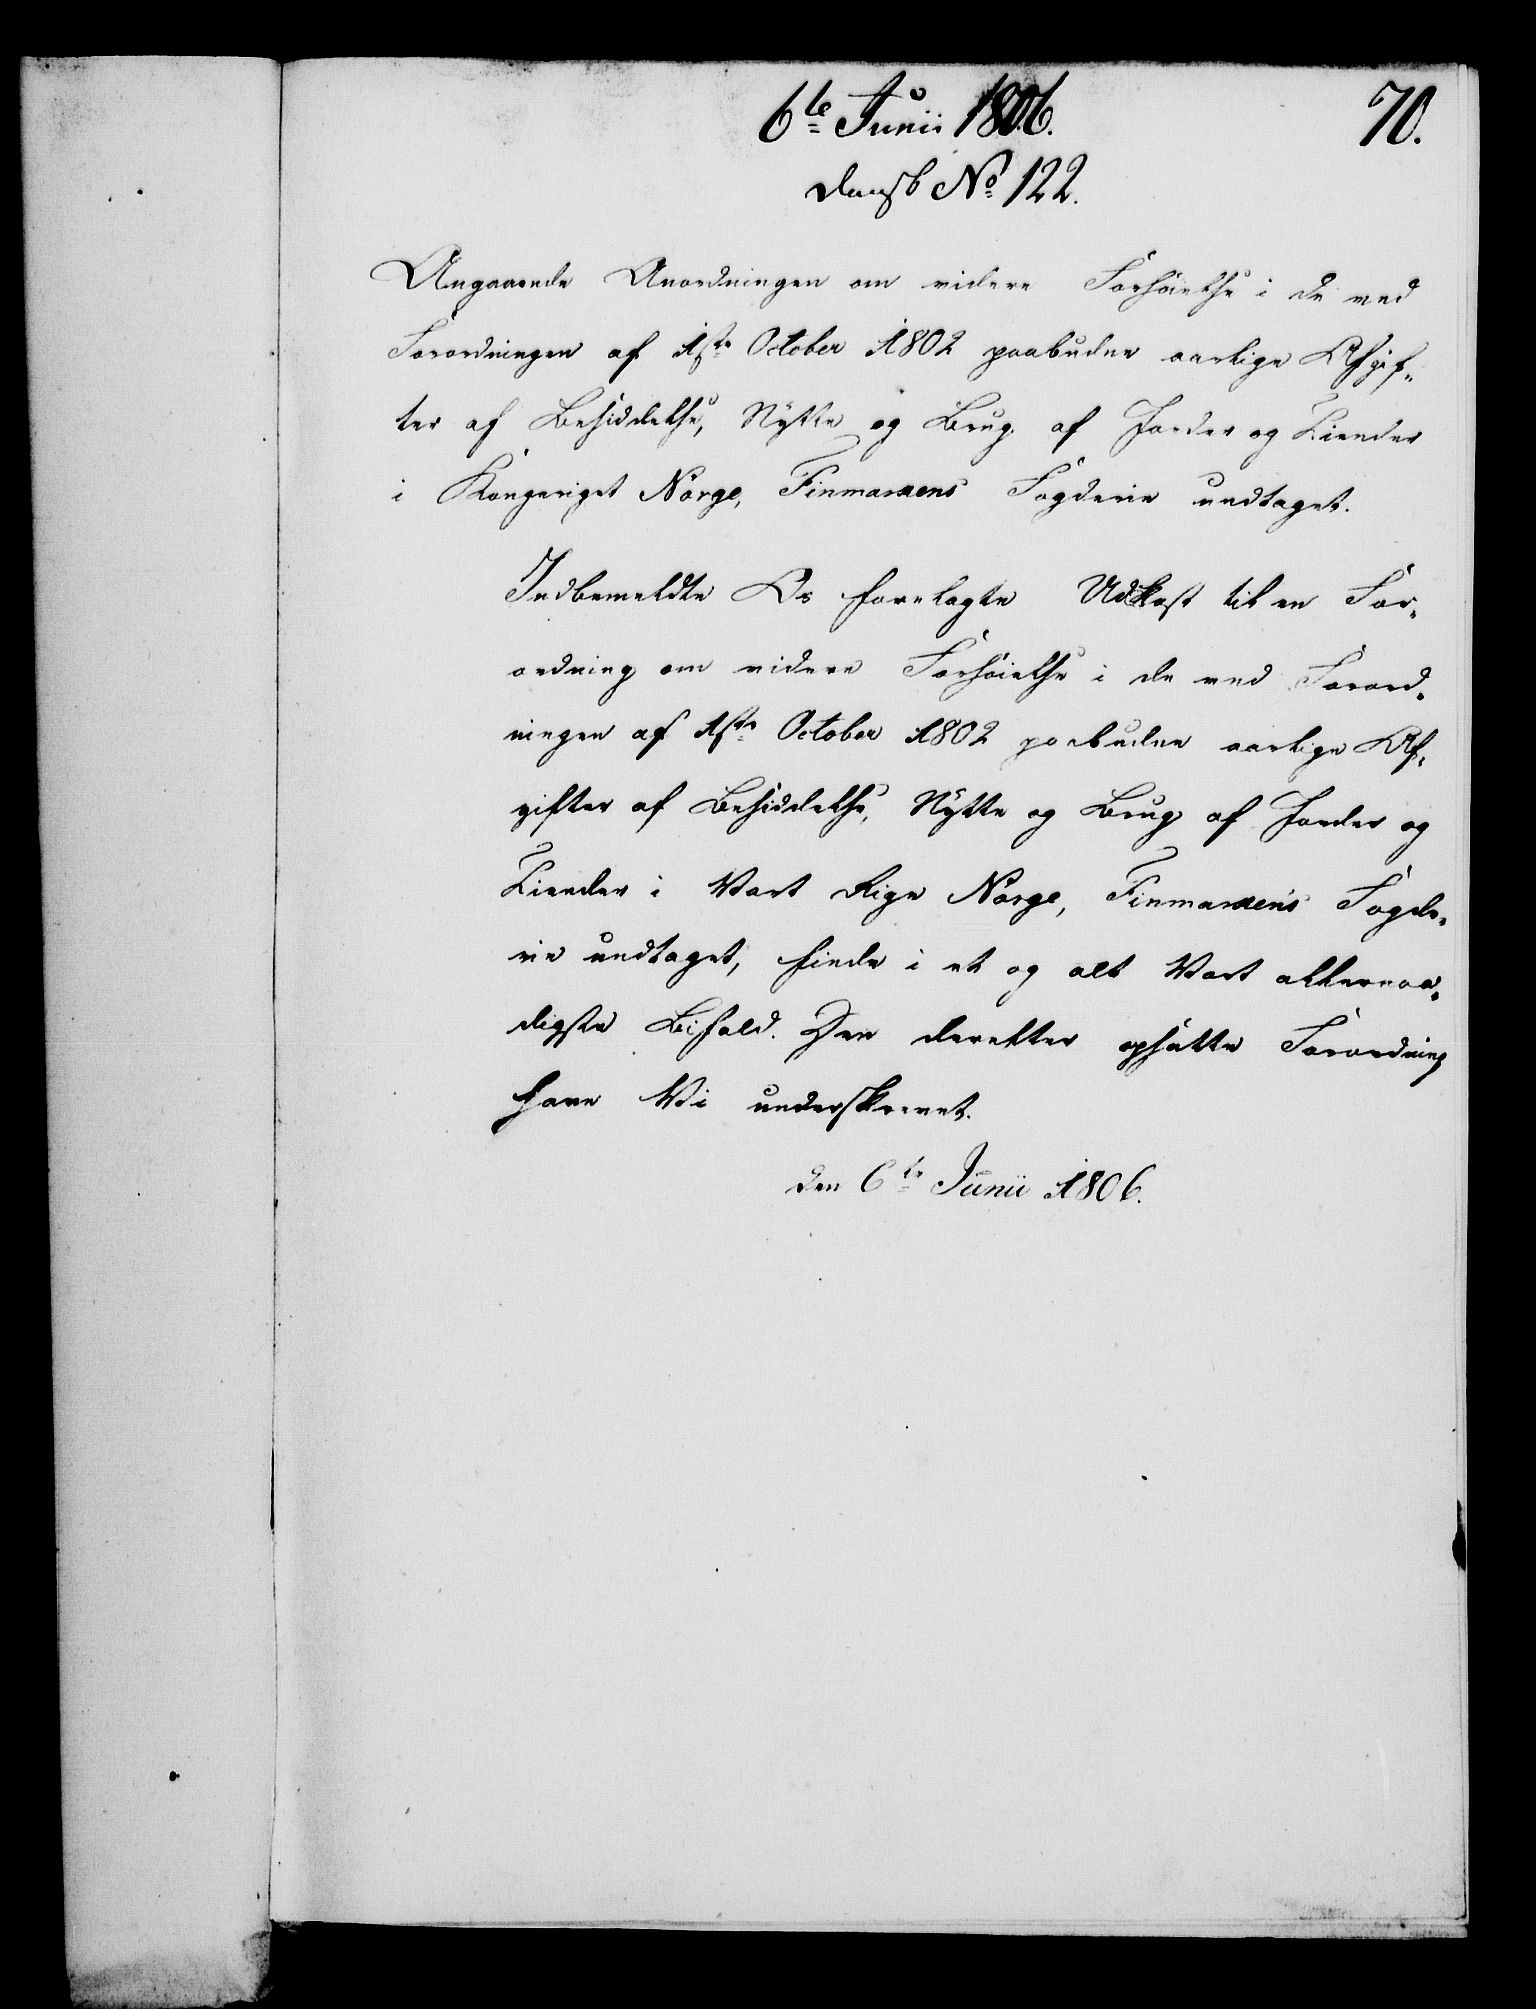 6te Junii 1806.
70.
Dansk No 122.
Angaaende Anordningen om videre Forhøielse i de ved
Forordningen af 1ste October 1802 paabudne aarlige Afgif-
ter af Besiddelse, Nytte og Brug af Jorder og Tiender
i Kongeriget Norge, Finmarkens Fogderie undtaget.
Indbemeldte Os forelagte Udkast til en For-
ordning om videre Forhøielse i de ved Forord-
ningen af 1ste October 1802 paabudne aarlige Af-
gifter af Besiddelse, Nytte og Brug af Jorder og
Tiender i Vort Rige Norge, Finmarkens Fogde-
rie undtaget, finde i et og alt Vort allernaa-
digste Bifald. Den derefter opsatte Forordning
have Vi underskrevet.
den 6te Junii 1806.